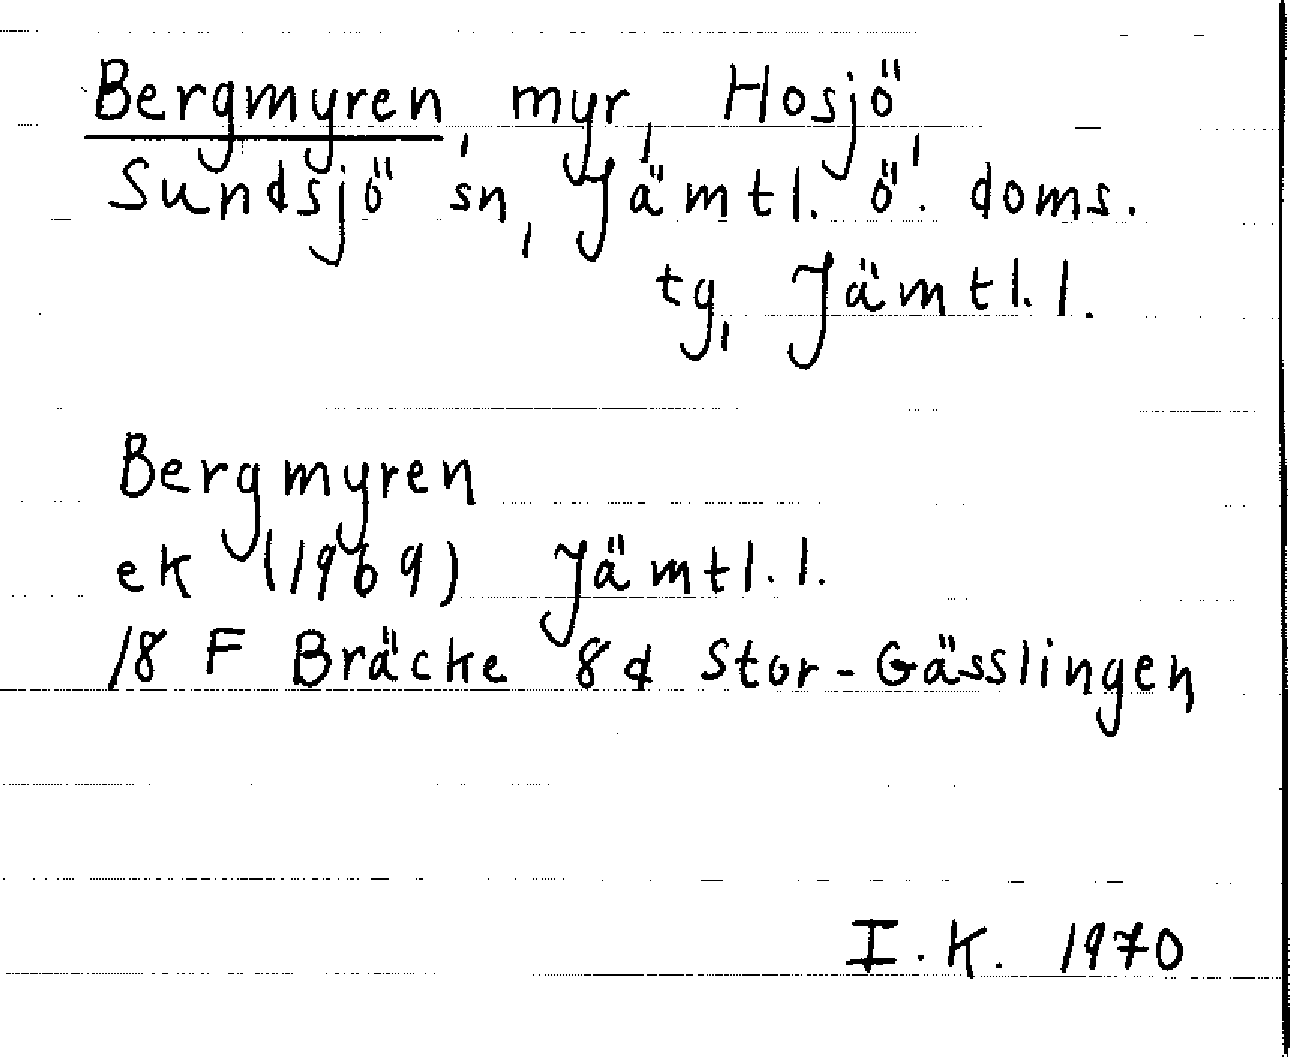 Bergmyren, myr, Hosjö,
Sundsjö sn, Jämtl. ö. doms.
tg, Jämtl. l.
Bergmyren
ek (1969) Jämtl. l.
18 F Bräcke 8d Stor-Gässlingen
I.K. 1970